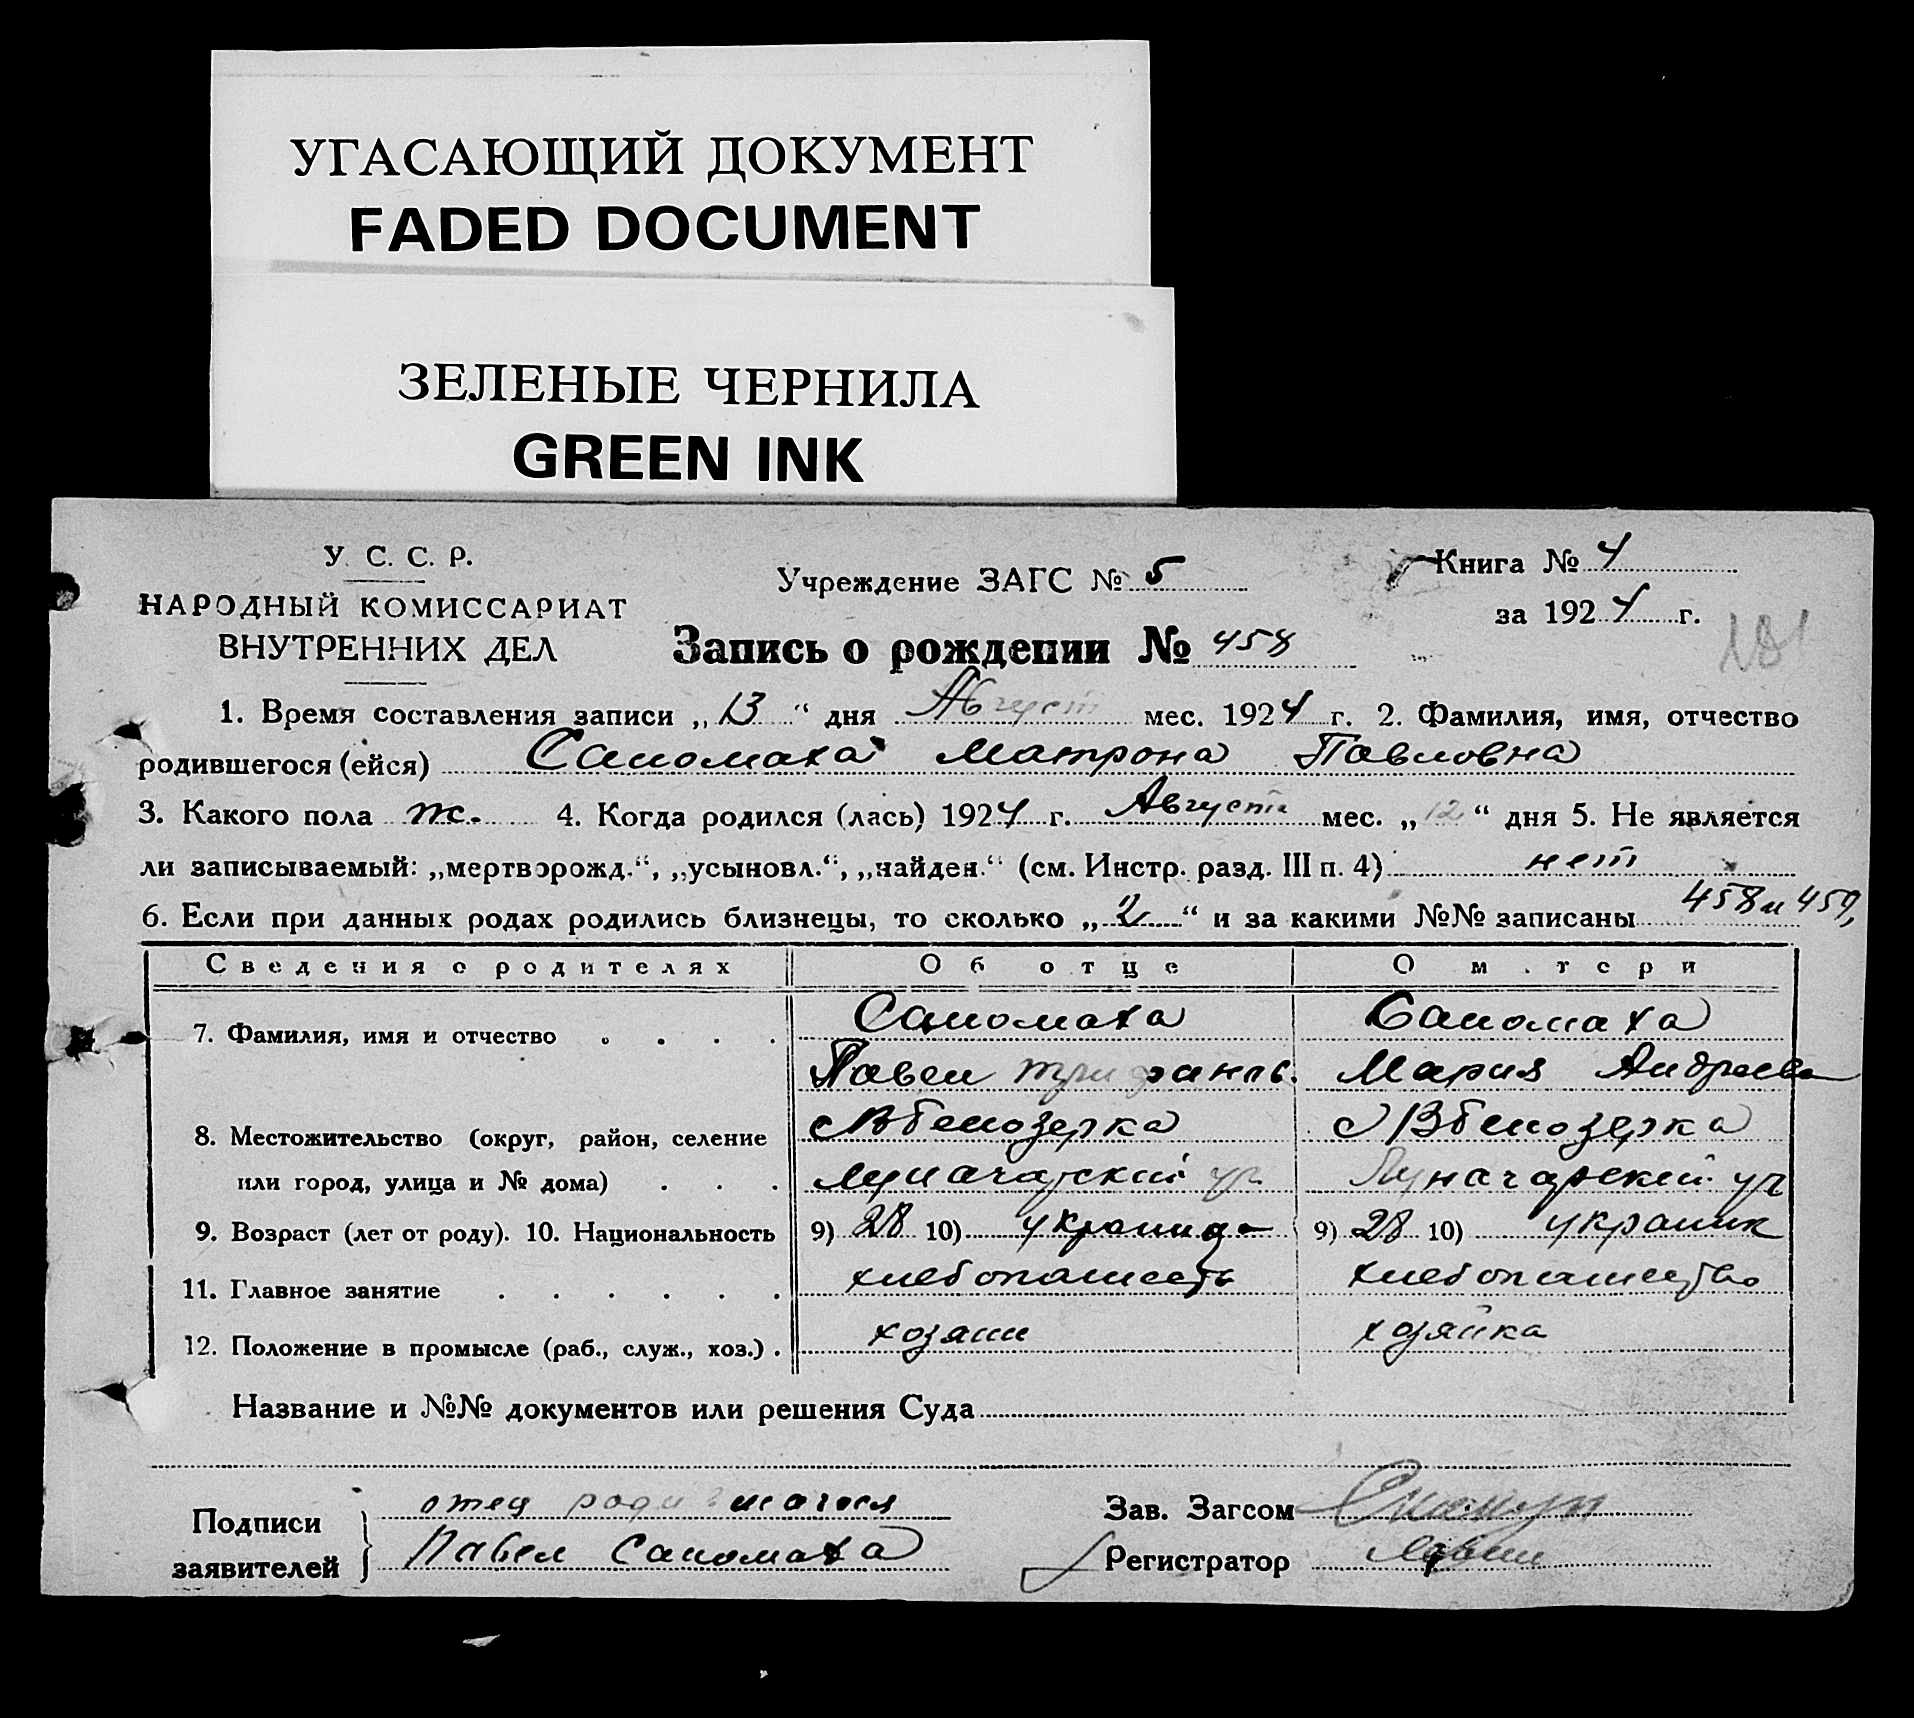 УГАСАЮЩИЙ ДОКУМЕНТ
FADED DOCUMENT
ЗЕЛЕНЫЕ ЧЕРНИЛА
GREEN INK
У. С. С. Р.
НАРОДНЫЙ КОМИССАРИАТ
ВНУТРЕННИХ ДЕЛ
Учреждение ЗАГС № 5
Книга № 4
за 1924 г.
Запись о рождении № 458
1. Время составления записи „13“ дня Август мес. 1924 г. 2. Фамилия, имя, отчество
родившегося (ейся) Саломаха Матрона Павловна
3. Какого пола ж. 4. Когда родился (лась) 1924 г. Август мес. „12“ дня 5. Не является
ли записываемый: „мертворожд.“, „усыновл.“, „найден.“ (см. Инстр. разд. III п. 4) нет
6. Если при данных родах родились близнецы, то сколько „2“ и за какими №№ записаны 458 и 459,
Сведения о родителях Об отце О матери
7. Фамилия, имя и отчество Саломаха Саломаха
Павел Мария Андреевн
8. Местожительство (округ, район, селение Вбелозерка Вбелозерка
или город, улица и № дома) Луначарский ул Луначарский ул
9. Возраст (лет от роду). 10. Национальность 9) 28 10) украинц 9) 28 10) украинк
11. Главное занятие хлебопашеств хлебопашество
12. Положение в промысле (раб., служ., хоз.) хозяин хозяйка
Название и №№ документов или решения Суда
Подписи заявителей
отец родившагося
Павел Саломаха
Зав. Загсом
Регистратор